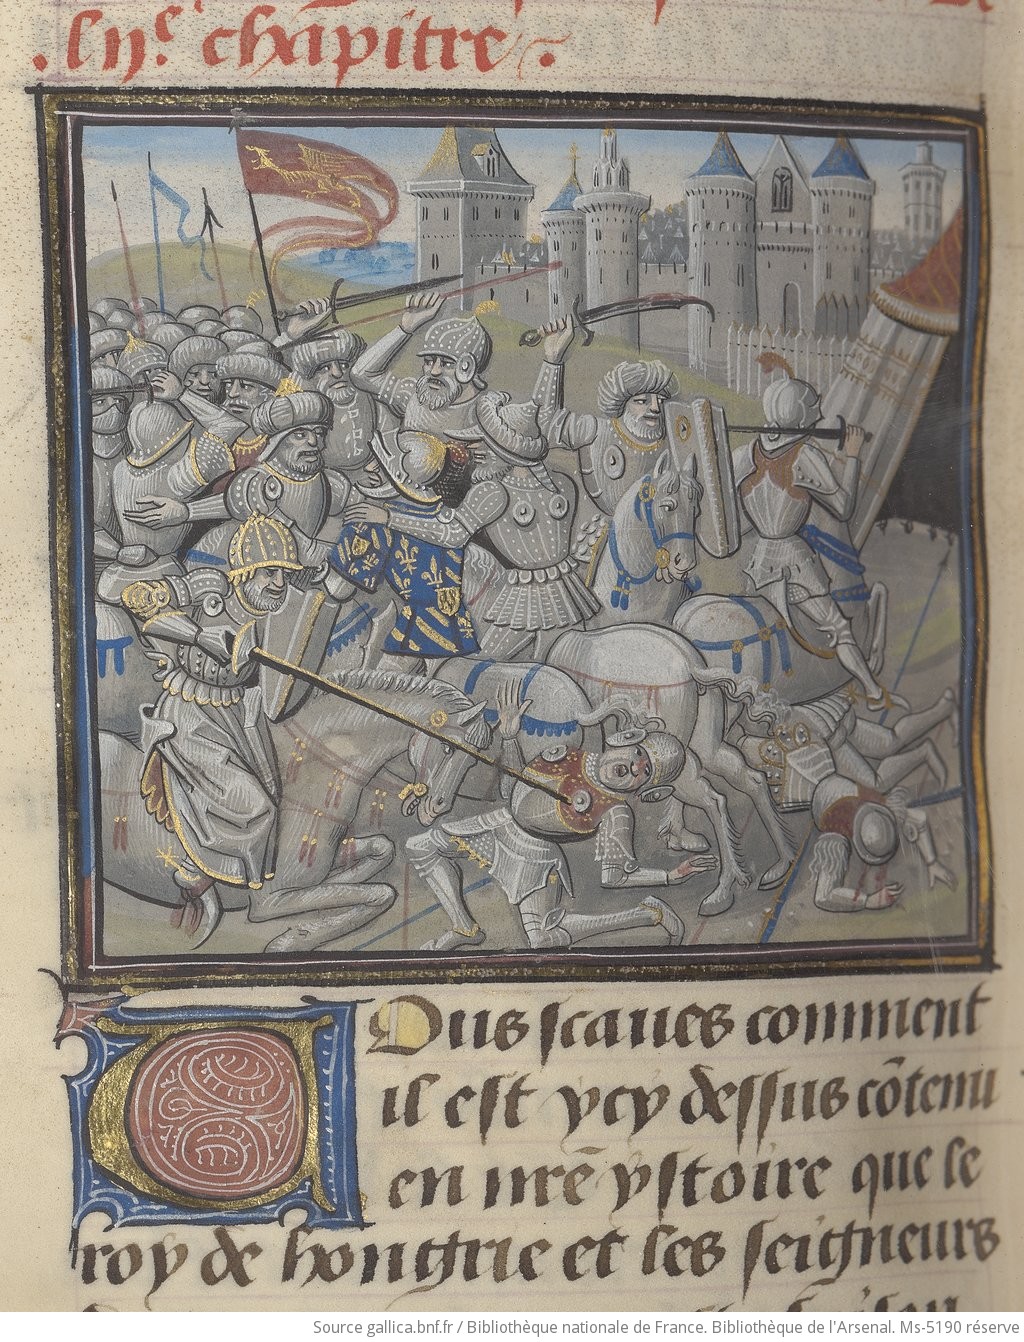 .lij.e chapitre.
Ous scaues comment
il est ycy dessus cōtenu
en nrē ystoire que le
roy de hongrie et les seigneurs
Source gallica.bnf.fr / Bibliothèque nationale de France. Bibliothèque de l'Arsenal. Ms-5190 réserve